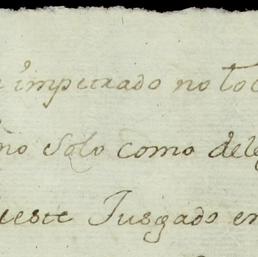 e imperado no to
no solo como dele
ueste Jusgado en